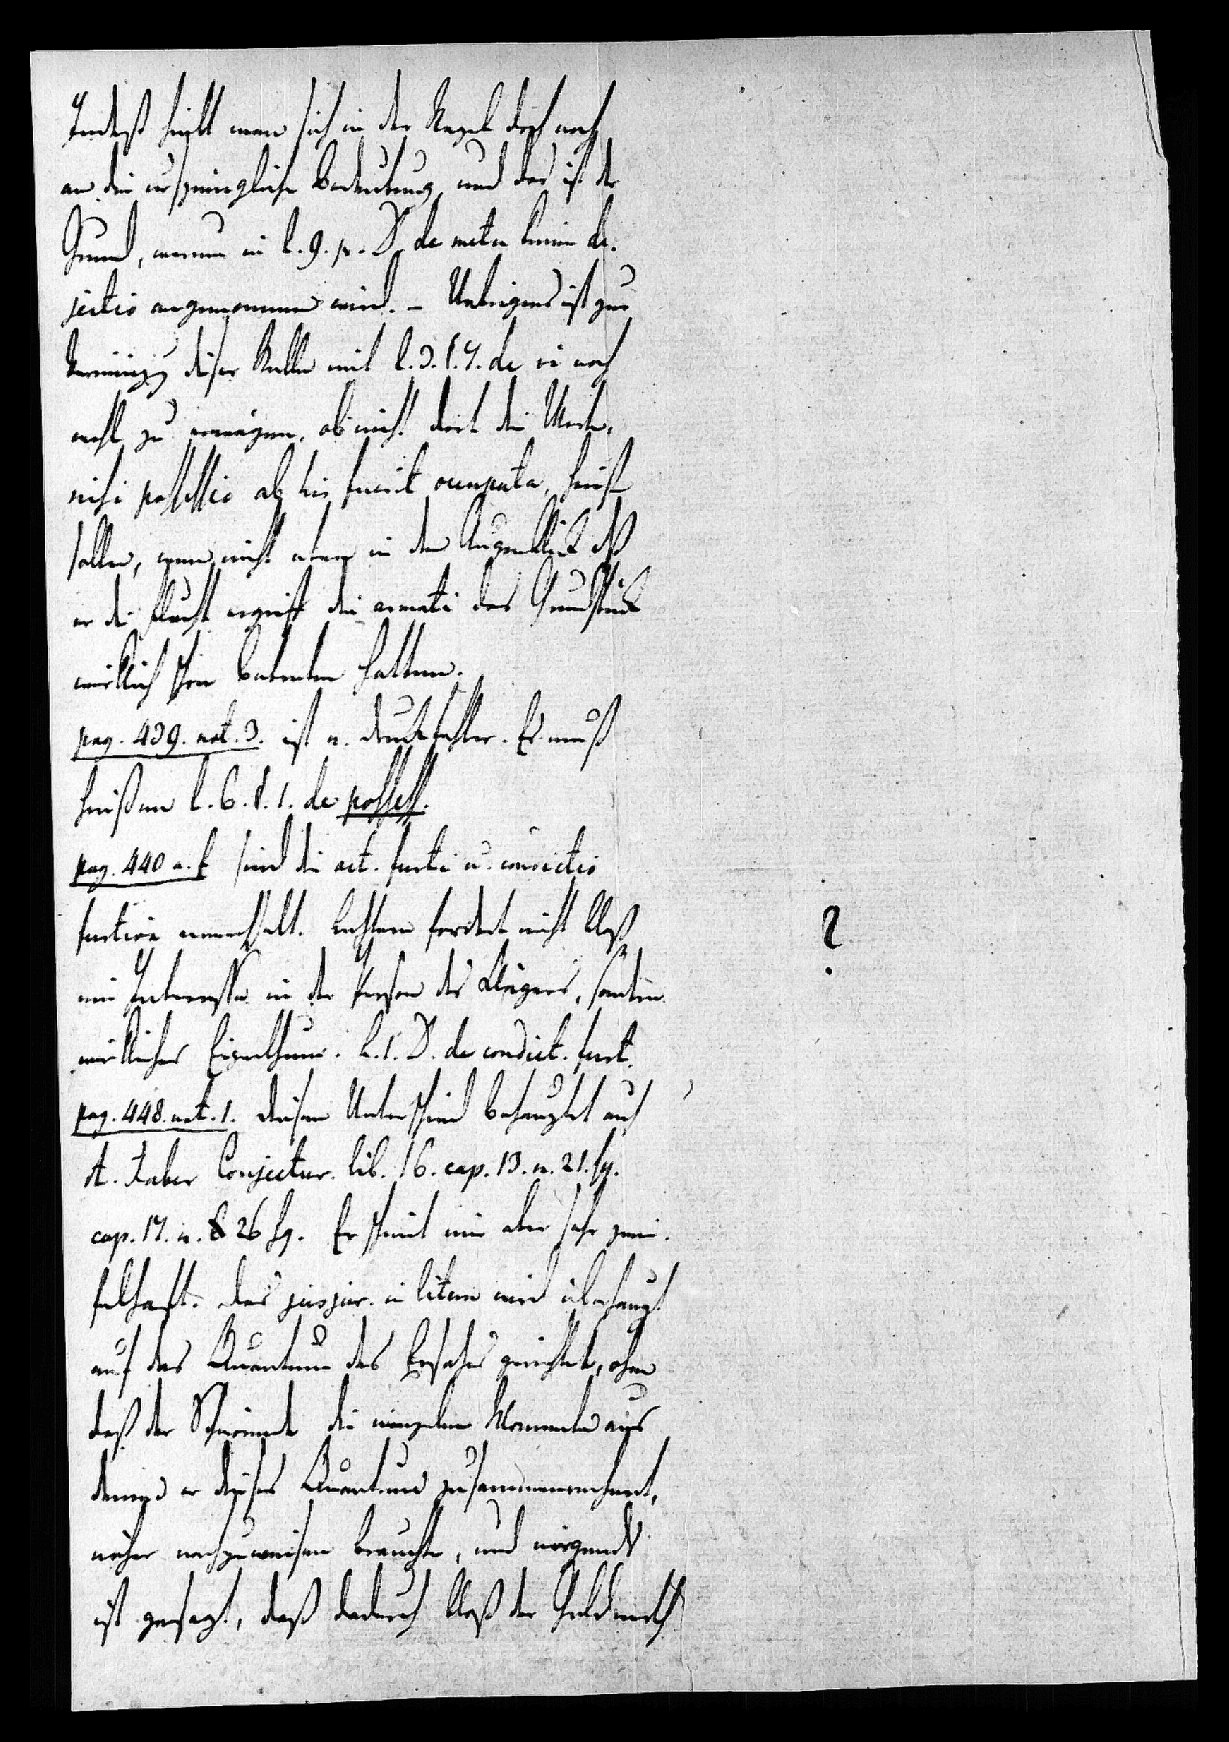 Indeß hielt man sich in der Regel doch noch
an die ursprüngliche Bedeutung, und das ist der
Grund, warum in l. 9. pr. D. de metu keine de-
jectio angenommen wird. – Uebrigens ist zur
Vereinigung dieser Stelle mit l. 3. §. 7. de vi noch
wohl zu erwägen, ob nicht dort die Worte,
nisi possessio ab his fuerit occupata, heißen
sollen, wenn nicht etwa in dem Augenblick daß
er die Flucht ergriff die armati das Grundstück
wirklich schon betreten hatten.
pag. 439. not. 3. ist e. Druckfehler. Es muß
heißen l. 6. §. 1. de possess.
pag. 440 a. E sind die act. furti u. condictio
furtiva Letztere fordert nicht bloß
ein Interesse in der Person des Klägers, sondern
wirkliches Eigenthum. l. 1. D. de condict. furt.
pag. 448. not. 1. Diesen Unterschied behauptet auch
A. Faber Conjectur. lib. 16. cap. 13. n. 21. sq.
cap. 17. n. 26 sq. Er scheint mir aber sehr zwei-
felhaft. Das jusjur. in litem wird überhaupt
auf das Quantum des Ersatzes gerichtet, ohne
daß der Schwörende die einzelnen Momente aus
denen er dieses Quantum zusammenrechnet,
näher nachzuweisen brauchte, und nirgends
ist gesagt, daß dadurch bloß der Geldwerth
?